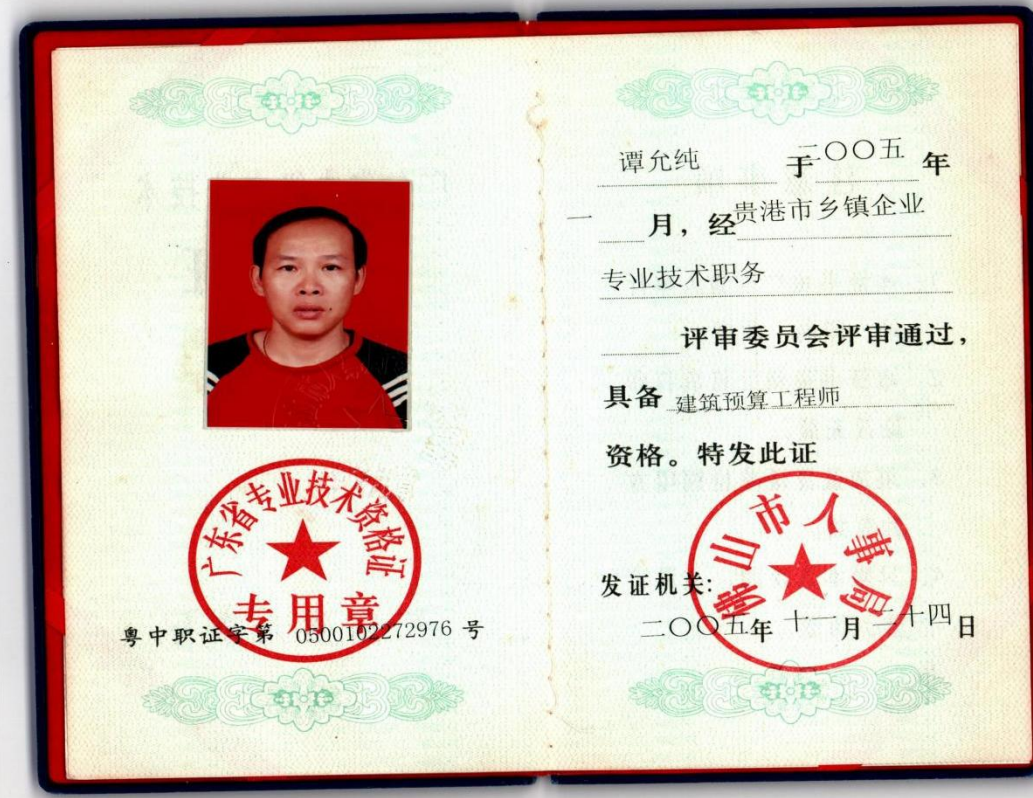 广东省专业技术资格证
专用章
粤中职证字第 0500102272976 号
谭允纯 于二〇〇五年
一月，经贵港市乡镇企业
专业技术职务
评审委员会评审通过，
具备 建筑预算工程师
资格。特发此证
佛山市人事局
发证机关:
二〇〇五年十一月二十四日